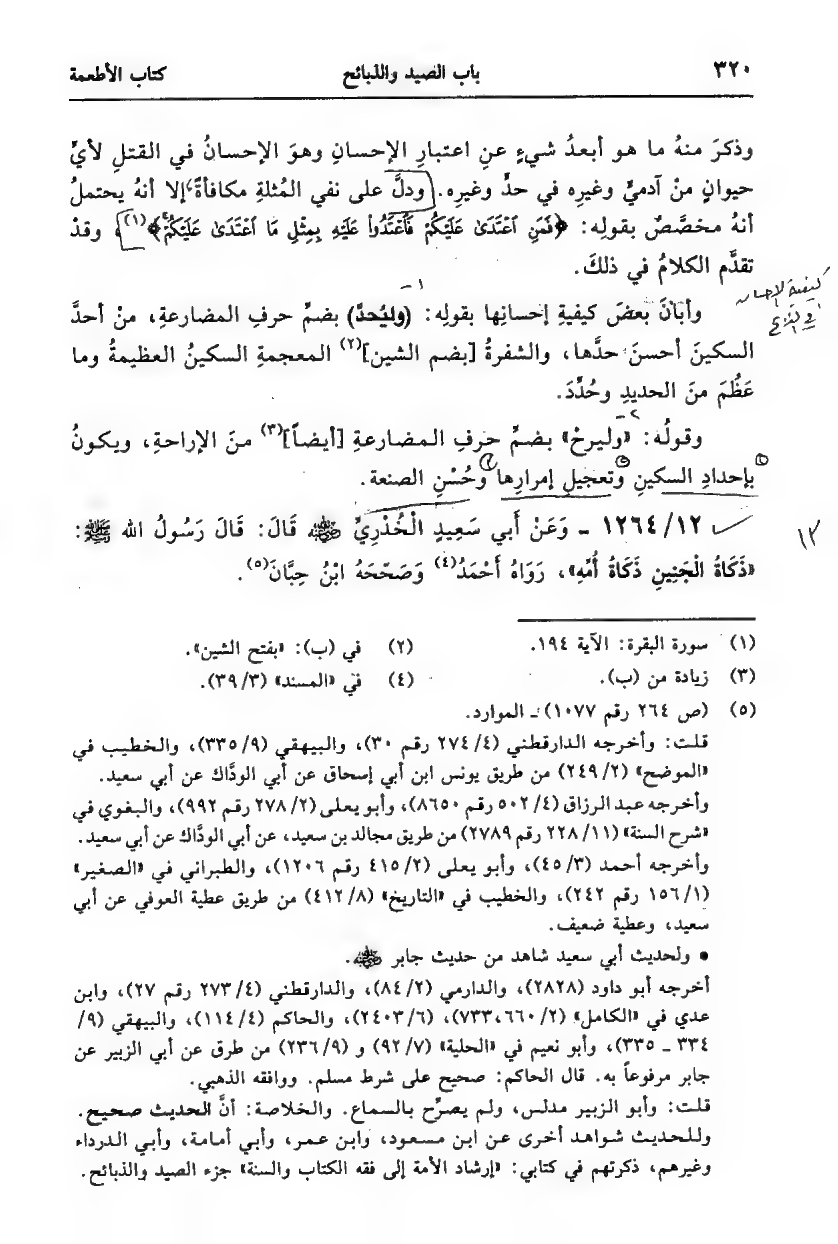 ٣٢٠ باب الصيد والذبائح كتاب الأطعمة
وذكرَ منهُ ما هو أبعدُ شيءٍ عنِ اعتبارِ الإحسانِ وهوَ الإحسانُ في القتلِ لأيِّ
حيوانٍ منْ آدميٍّ وغيرِه في حدٍّ وغيرِه. ودلَّ على نفي المُثلةِ مكافأةً إلا أنهُ يحتملُ
أنهُ مخصَّصٌ بقولِه: ﴿فَمَنِ اعْتَدَىٰ عَلَيْكُمْ فَاعْتَدُوا عَلَيْهِ بِمِثْلِ مَا اعْتَدَىٰ عَلَيْكُمْ﴾(١)، وقدْ
تقدَّم الكلامُ في ذلكَ.
كيفية الإحسان
في الذبح
١-
وأبانَ بعضَ كيفيةِ إحسانِها بقولِه: (وليُحدَّ) بضمِّ حرفِ المضارعةِ، منْ أحدَّ
السكينَ أحسنَ حدَّها، والشفرةُ [بضم الشين](٢) المعجمةِ السكينُ العظيمةُ وما
عَظُمَ منَ الحديدِ وحُدِّدَ.
٢-
وقولُه: «وليرحْ» بضمِّ حرفِ المضارعةِ [أيضاً](٣) منَ الإراحةِ، ويكونُ
بإحدادِ السكينِ وتعجيلِ إمرارِها وحُسْنِ الصنعة.
١٢/ ١٢٦٤ - وَعَنْ أَبي سَعِيدٍ الْخُدْرِيِّ ﵁ قَالَ: قَالَ رَسُولُ الله ﷺ:
١٢
«ذَكَاةُ الْجَنِينِ ذَكَاةُ أُمِّهِ»، رَوَاهُ أَحْمَدُ(٤) وَصَحّحَهُ ابْنُ حِبَّانَ(٥).
(١) سورة البقرة: الآية ١٩٤. (٢) في (ب): «بفتح الشين».
(٣) زيادة من (ب). (٤) في «المسند» (٣/ ٣٩).
(٥) (ص ٢٦٤ رقم ١٠٧٧) - الموارد.
قلت: وأخرجه الدارقطني (٤/ ٢٧٤ رقم ٣٠)، والبيهقي (٩/ ٣٣٥)، والخطيب في
«الموضح» (٢/ ٢٤٩) من طريق يونس ابن أبي إسحاق عن أبي الودَّاك عن أبي سعيد.
وأخرجه عبد الرزاق (٤/ ٥٠٢ رقم ٨٦٥٠)، وأبو يعلى (٢/ ٢٧٨ رقم ٩٩٢)، والبغوي في
«شرح السنة» (١١/ ٢٢٨ رقم ٢٧٨٩) من طريق مجالد بن سعيد، عن أبي الوداك عن أبي سعيد.
وأخرجه أحمد (٣/ ٤٥)، وأبو يعلى (٢/ ٤١٥ رقم ١٢٠٦)، والطبراني في «الصغير»
(١/ ١٥٦ رقم ٢٤٢)، والخطيب في «التاريخ» (٨/ ٤١٢) من طريق عطية العوفي عن أبي
سعيد، وعطية ضعيف.
• ولحديث أبي سعيد شاهد من حديث جابر ﵁.
أخرجه أبو داود (٢٨٢٨)، والدارمي (٢/ ٨٤)، والدارقطني (٤/ ٢٧٣ رقم ٢٧)، وابن
عدي في «الكامل» (٢/ ٦٦٠، ٧٣٣)، (٦/ ٢٤٠٣)، والحاكم (٤/ ١١٤)، والبيهقي (٩/
٣٣٤ - ٣٣٥)، وأبو نعيم في «الحلية» (٧/ ٩٢) و (٩/ ٢٣٦) من طرق عن أبي الزبير عن
جابر مرفوعاً به. قال الحاكم: صحيح على شرط مسلم. ووافقه الذهبي.
قلت: وأبو الزبير مدلس، ولم يصرِّح بالسماع. والخلاصة: أنَّ الحديث صحيح.
وللحديث شواهد أخرى عن ابن مسعود، وابن عمر، وأبي أمامة، وأبي الدرداء
وغيرهم، ذكرتهم في كتابي: «إرشاد الأمة إلى فقه الكتاب والسنة» جزء الصيد والذبائح.